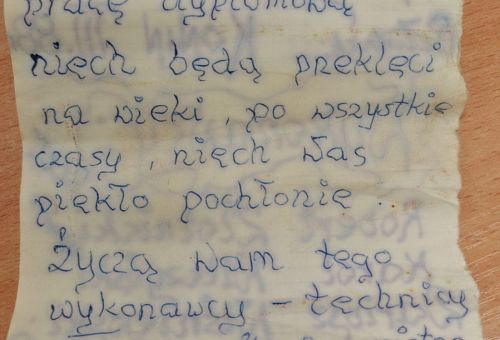 pracę dyplomową
nięch będą preklęci
na wieki, po wszystkię
czasy, nięch Was
piękło pochłonię.
Życzą wam tęgo
wykonawcy - tęchnicy